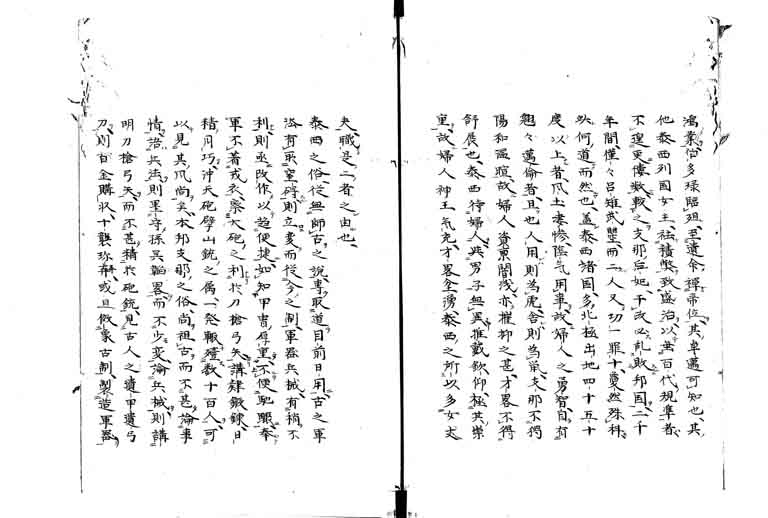 鴻業伯多琭臨殂至遺命禪帝位其卓邁可知也其
他泰西列國女王往積弊致盛治以垂百代規準者
不遑更僕數之支那后妃干政必乱敗邦国二千
年間僅々呂雉武曌而二人又功一罪十夐然殊科
此何道而然也蓋泰西諸国多北極出地四十五十
度以上者風土凄惨陰気用事故婦人之勇智自有
翹々萬倫者且也人用則為虎舎則為鼠支那不独
陽和温煊故婦人資稟闇浅亦摧抑之甚才畧不得
舒展也泰西待婦人與男子無異推戴欽仰極其崇
重故婦人神王気充才畧全湧泰西之所以多女丈
夫職是二者之由也
泰西之俗從無師古之說專取道目前日用古之軍
器有窒碍則立変而從今之制軍器兵械有稍不
利則亟改作以趋便捷如知甲冑厚重不便馳驅奉
軍不著戎衣察大砲之利於刀槍弓矢講肄鍛錬日
精月巧沖天砲劈山銃之属一発輙殪数十百人可
以見其風尚矣本邦支那之俗尚祖古而不甚倫事
情論兵法則墨守孫呉韜畧而不少変倫兵械則講
明刀槍弓矢而不甚精於砲銃見古人之遺甲遺弓
刀則百金購收十襲珍蔵或且倣蒙古制製造軍器